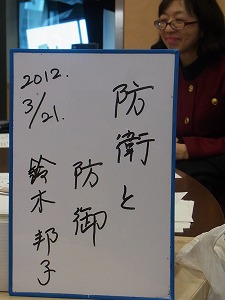 防衛と
防御
鈴木邦子
2012.
3/21.